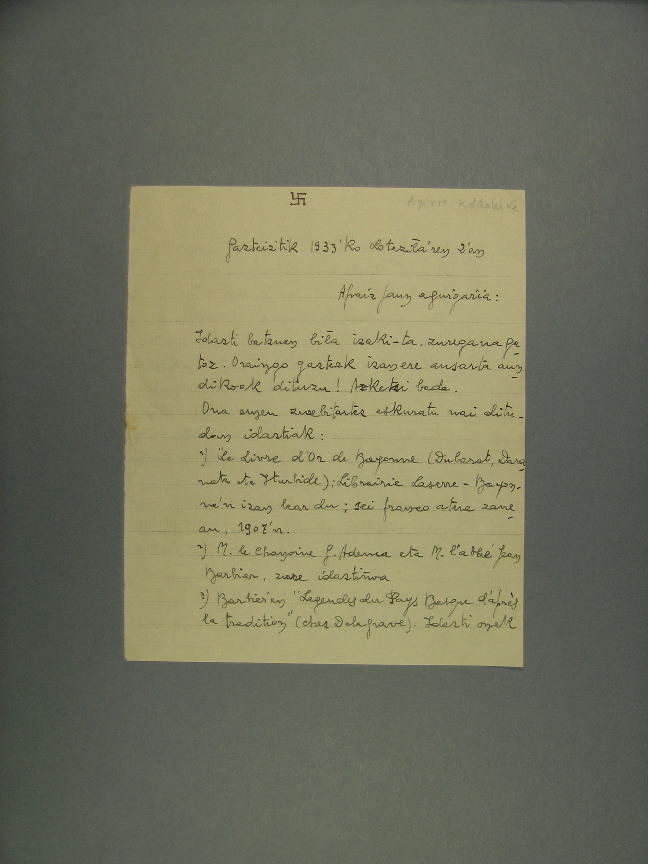 Agirre,
Gazteiztik 1933'ko Otsailla'ren 2'an
Apraiz jaun agurgaria:
Idasti batzuen billa izaki-ta, zuregana ga-
toz. Oraingo gazteak izan ere ausarta aun-
dikoak dituzu! Azketsi bada.
Ona emen zure bitartez eskuratu nai ditu-
dan idastiak:
1) "Le Livre d'Or de Bayonne (Dubarat, Dara-
nata ta Iturbide); Librairie Laserre - Bayon-
ne'n izan bear du; sei franco atera zane-
an, 1907'n.
2) M. le Chanoine J. Adema eta M. l'abbé Jean
Barbier, zure idastiñoa
3) Barbier'en "Legendes du Pays Basque d'après
la tradition" (chez Delagrave). Idasti onek